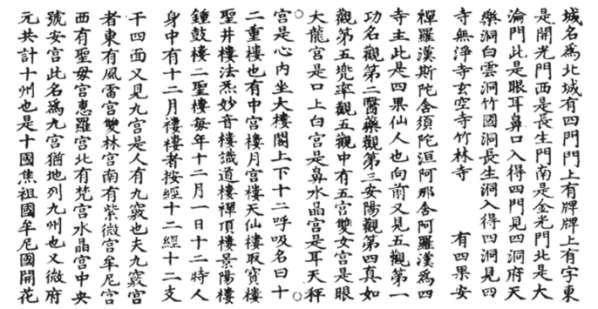 城名為北城有四門門上有牌牌上有字東
是開光門西是長生門南是金光門北是大
淪門此是眼耳鼻口入得四門見四洞府天
樂洞白雲洞竹國洞長生洞入得四洞見四
寺無淨寺玄空寺竹林寺　　有四果安
禪羅漢斯陀舍須陀洹阿那舍阿羅漢為四
寺主此是四果仙人也向前又見五觀第一
功名觀第二醫藥觀第三安陽觀第四真如
觀第五兜率觀五觀中有五宮雙女宮是眼
大龍宮是口上白宮是鼻水晶宮是耳天秤
宮是心內坐大樓閣上下十二呼吸名曰十
二重樓也有中宮樓月宮樓天仙樓取寶樓
聖井樓法炁妙音樓識道樓禪頂樓景陽樓
鍾鼓樓二聖樓每年十二月一日十二時人
身中有十二月樓樓者按經十二經十二支
干四面又見九宮是人有九竅也夫九竅宮
者東有風雷宮雙林宮南有紫微宮牟尼宮
西有聖母宮惠羅宮北有梵宮水晶宮中央
號安宮此名為九宮猶地列九州也又微府
元共計十州也是十國焦祖國牟尼國開花